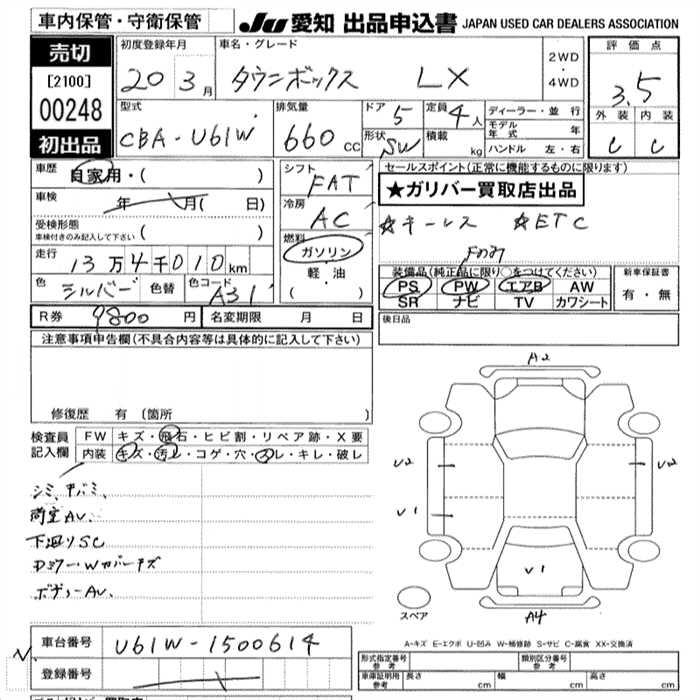 車内保管・守衛保管
JU 愛知 出品申込書 JAPAN USED CAR DEALERS ASSOCIATION
売切
[2100]
00248
初出品
初度登録年月
20 3月
車名・グレード
タウンボックス LX
2WD
・
4WD
評価点
3.5
外装 内装
C C
型式
CBA-U61W
排気量
660 CC
ドア 5
形状 SW
定員 4人
積載 kg
ディーラー・並行
モデル年式 年
ハンドル 左・右
車歴 自家用・( )
車検 年 月( 日)
受検形態
車検付きのみ記入して下さい ( )
走行 13万4千010km
色 シルバー 色替 色コード A31
シフト FAT
冷房 AC
燃料 ガソリン
軽・油
( ・ )
セールスポイント(正常に機能するものに限ります)
★ガリバー買取店出品
☆キーレス ☆ETC
装備品(純正品に限り○をつけてください)
PS PW エアB AW
SR ナビ TV カワシート
新車保証書
有・無
R券 9800円 名変期限 月 日
後日品
注意事項申告欄(不具合内容等は具体的に記入して下さい)
修復歴 有 [箇所 ]
検査員
記入欄
FW キズ・飛石・ヒビ割・リペア跡・X要
内装 キズ・汚レ・コゲ・穴・スレ・キレ・破レ
シミ、キバミ、
荷室AV.
下廻りSC
ボディーAV.
A2
U2 U2
U1
U1
A4
スペア
A-キズ E-エクボ U-凹み W-補修跡 S-サビ C-腐食 XX-交換済
車台番号 U61W-1500614
登録番号
形式指定番号
参考
類別区分番号
参考
車庫証明用
参考
長さ cm 幅 cm 高さ cm